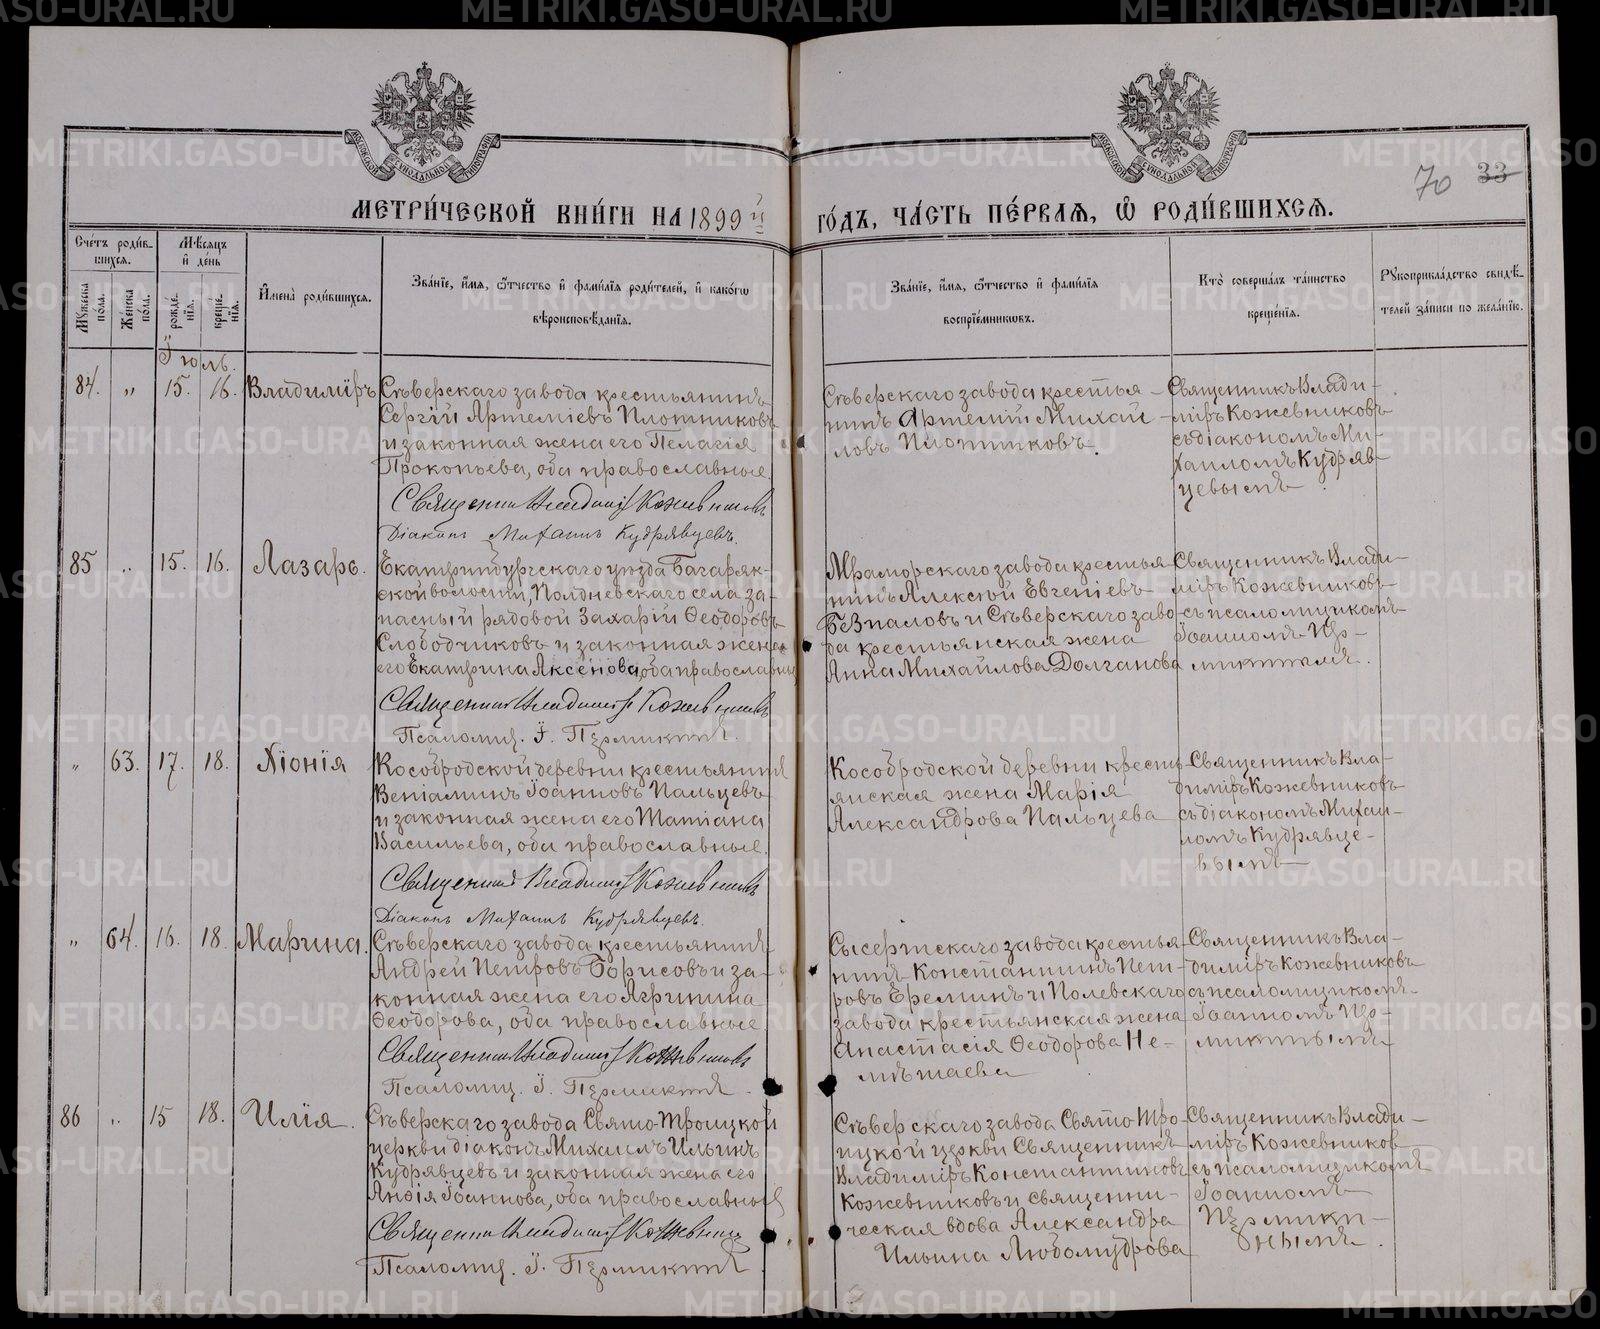 METRIKI.GASO-URAL.RU
МОСКОВСКОЙ СѴНОДАЛЬНОЙ ТИПОГРАФІИ
МОСКОВСКОЙ СѴНОДАЛЬНОЙ ТИПОГРАФІИ
70 33
МЕТРИ́ЧЕСКОЙ КНИ́ГИ НА 1899й
ГО́ДЪ, ЧА́СТЬ ПЕ́РВАЯ, Ѡ҆ РОДИ́ВШИХСЯ.
Сче́тъ роди́вшихся.
Мꙋжеска по́ла.
Же́нска по́ла.
Мѣ́сяцъ и҆ де́нь
рожде́нїя.
креще́нїя.
И҆мена̀ роди́вшихся.
Зва́нїе, и҆́мя, ѻ҆́тчество и҆ фами́лїя роди́телей, и҆ како́гѡ
вѣроисповѣ́данїя.
Зва́нїе, и҆́мя, ѻ҆́тчество и҆ фами́лїя
воспрїе́мникѡвъ.
Кто̀ соверша́лъ та́инство
креще́нїя.
Рꙋкоприкла́дство свидѣ́-
телей за́писи по жела́нїю.
Іюль.
84. „ 15. 16. Владиміръ
Сѣверскаго завода крестьянинъ
Сергій Артеміевъ Плотниковъ
и законная жена его Пелагія
Прокопьева, оба православные.
Священникъ Владиміръ Кожевниковъ
Діаконъ Михаилъ Кудрявцевъ.
Сѣверскаго завода крестья-
нинъ Артемій Михай-
ловъ Плотниковъ.
Священникъ Влади-
міръ Кожевниковъ
съ діакономъ Ми-
хаиломъ Кудряв-
цевымъ.
85 „ 15. 16. Лазарь.
Екатеринбургскаго уѣзда Багаряк-
ской волости, Полдневскаго села за-
пасный рядовой Захарій Ѳеодоровъ
Слободчиковъ и законная жена
его Екатерина Аксёнова, оба православные
Священникъ Владиміръ Кожевниковъ
Псаломщ. І. Пермикинъ.
Мраморскаго завода крестья-
нинъ Алексѣй Евгеніевъ
Безпаловъ и Сѣверскаго заво-
да крестьянская жена
Анна Михайлова Долганова
Священникъ Влади-
міръ Кожевниковъ
съ псаломщикомъ
Іоанномъ Пер-
микинымъ.
„ 63. 17. 18. Хіонія
Кособродской деревни крестьянинъ
Веніаминъ Іоанновъ Пальцевъ
и законная жена его Татіана
Васильева, оба православные.
Священникъ Владиміръ Кожевниковъ
Діаконъ Михаилъ Кудрявцевъ.
Кособродской деревни кресть-
янская жена Марія
Александрова Пальцева
Священникъ Вла-
диміръ Кожевниковъ
съ діакономъ Михаи-
ломъ Кудрявце-
вымъ
„ 64. 16. 18. Марина.
Сѣверскаго завода крестьянинъ
Андрей Петровъ Борисовъ и за-
конная жена его Агрипина
Ѳеодорова, оба православные.
Священникъ Владиміръ Кожевниковъ
Псаломщ. І. Пермикинъ.
Сысертскаго завода крестья-
нинъ Константинъ Пет-
ровъ Ереминъ и Полевскаго
завода крестьянская жена
Анастасія Ѳеодорова Не-
мѣшаева
Священникъ Вла-
диміръ Кожевниковъ
съ псаломщикомъ
Іоанномъ Пер-
микинымъ
86 „ 15 18. Илія.
Сѣверскаго завода Свято-Троицкой
церкви діаконъ Михаилъ Ильинъ
Кудрявцевъ и законная жена его
Анѳія Іоаннова, оба православные
Священникъ Владиміръ Кожевниковъ
Псаломщ. І. Пермикинъ
Сѣверскаго завода Свято-Тро-
ицкой церкви Священникъ
Владиміръ Константиновъ
Кожевниковъ и священни-
ческая вдова Александра
Ильина Любомудрова
Священникъ Влади-
міръ Кожевниковъ
съ псаломщикомъ
Іоанномъ
Пермики-
нымъ.